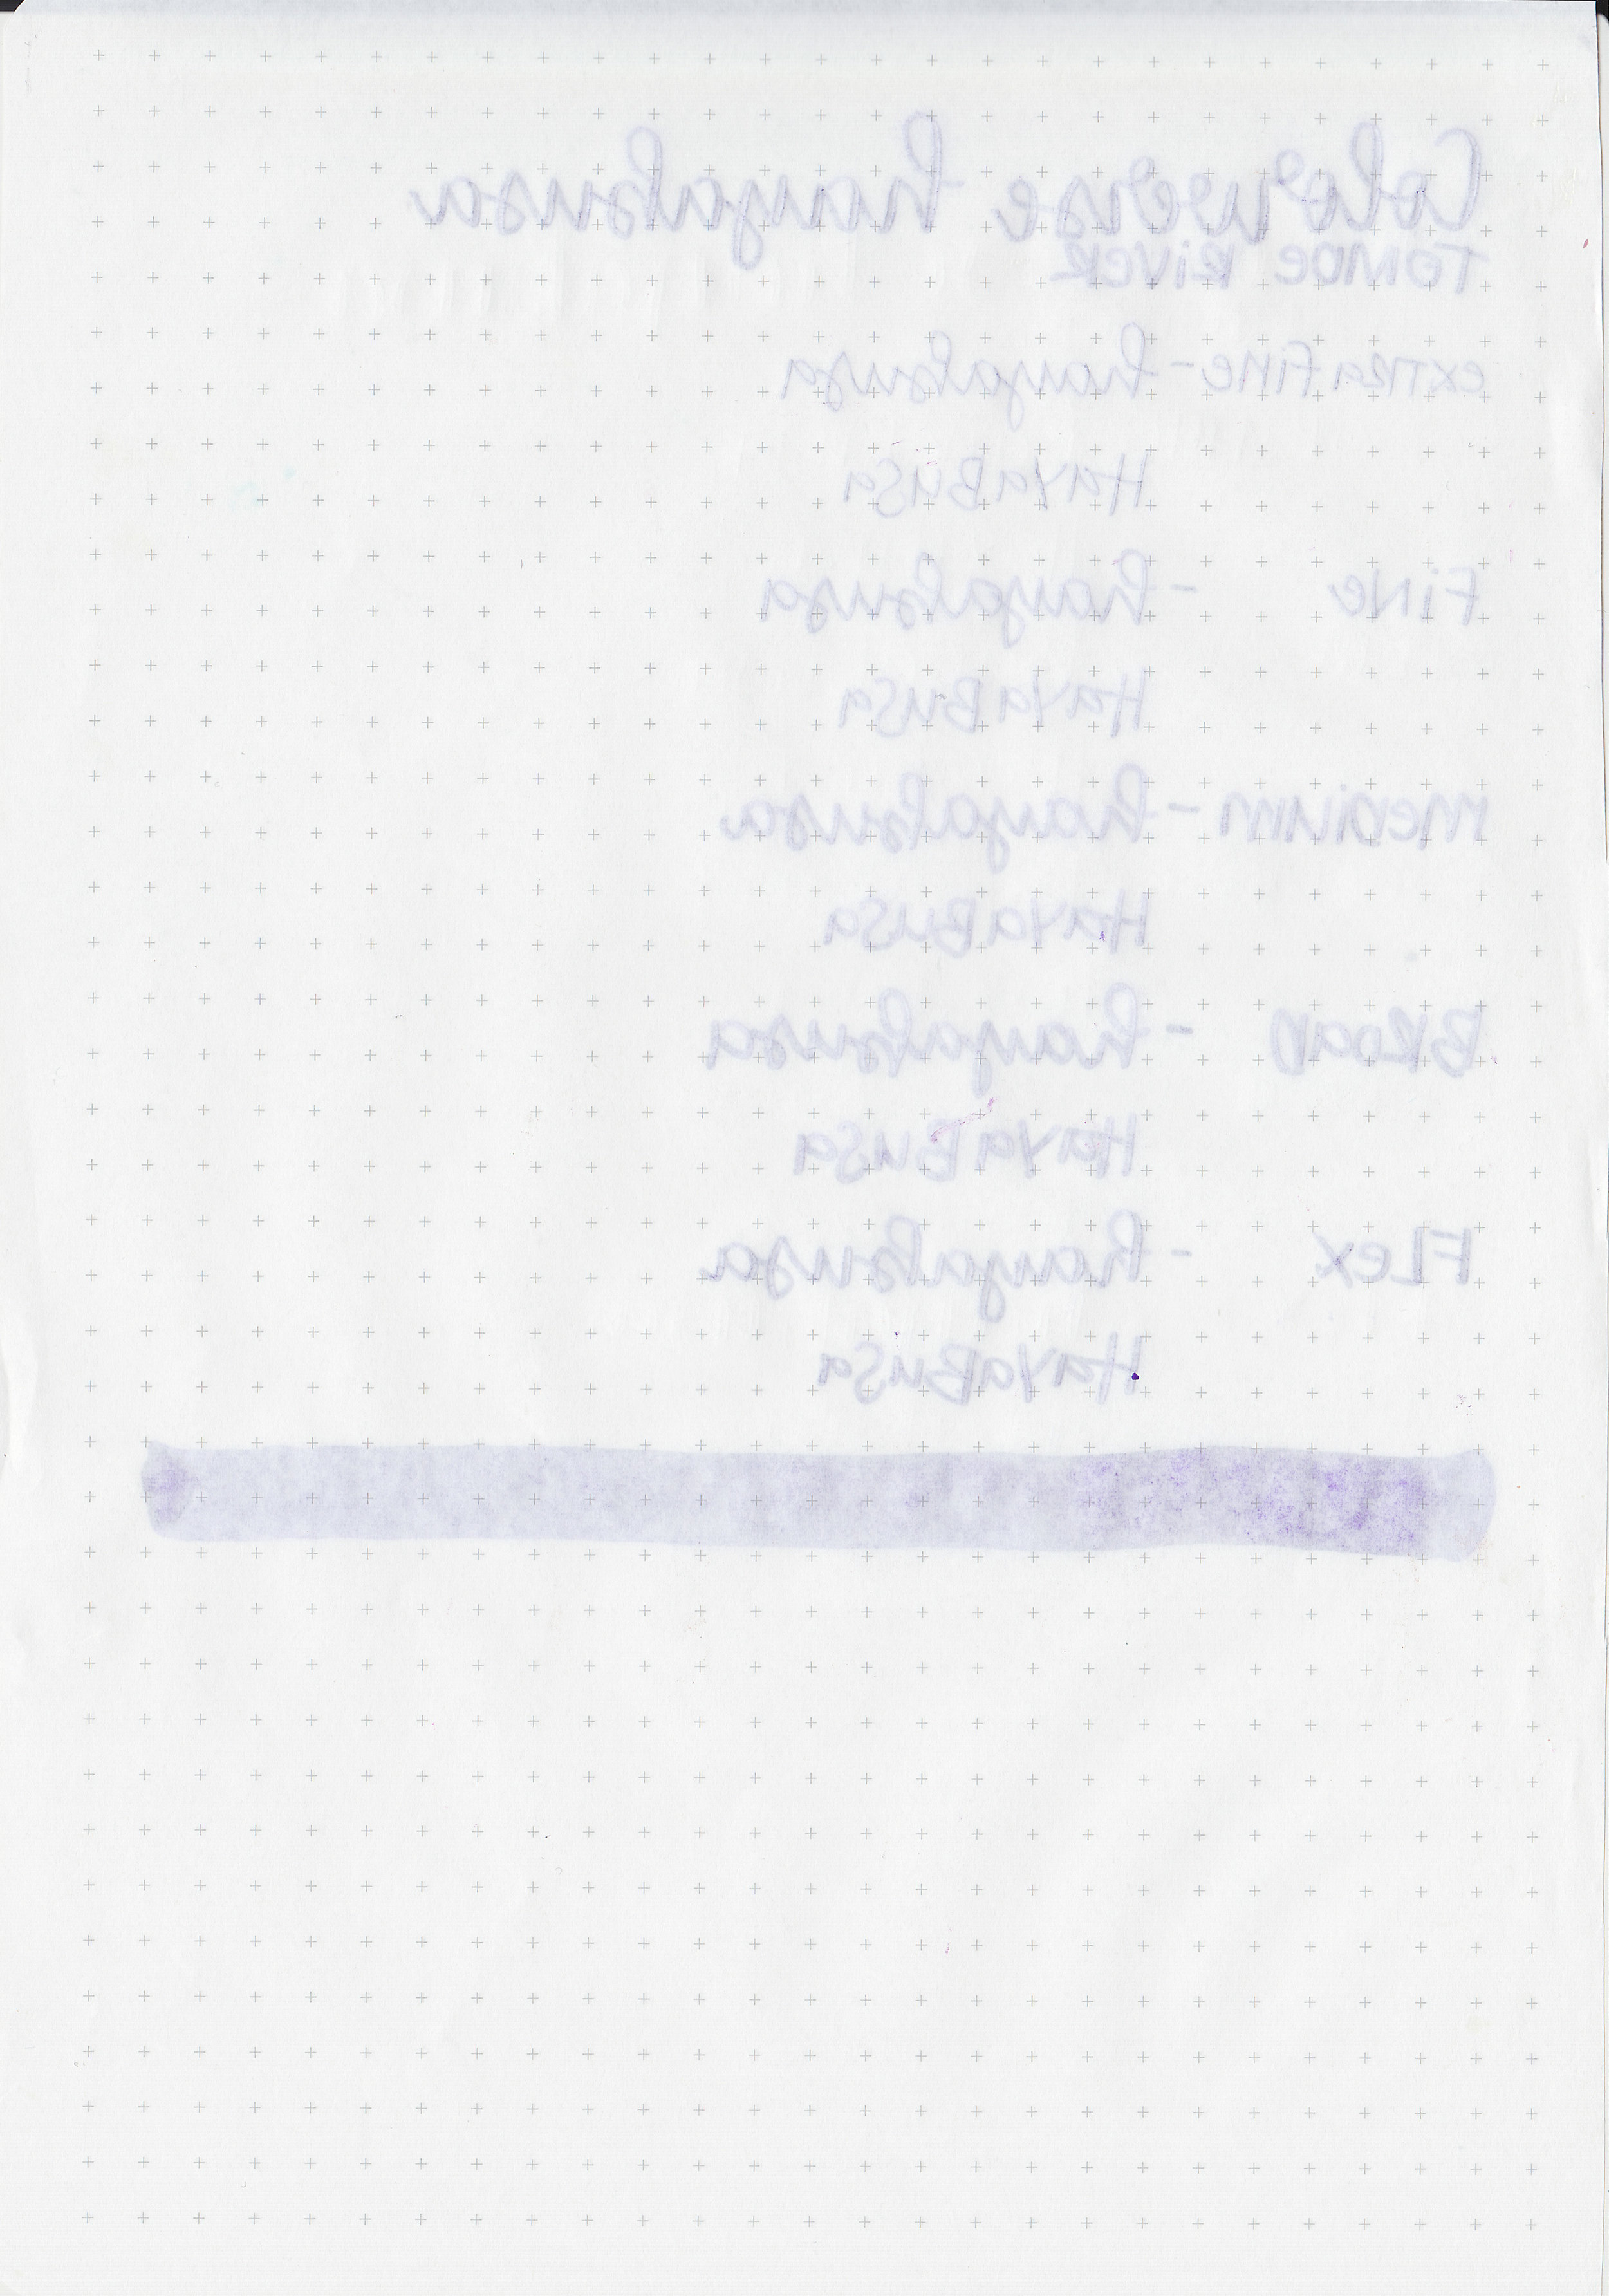 Colorverse hayabusa
TOMOE RIVER
EXTRA FINE - hayabusa
HAYABUSA
FINE - hayabusa
HAYABUSA
MEDIUM - hayabusa
HAYABUSA
BROAD - hayabusa
HAYABUSA
FLEX - hayabusa
HAYABUSA